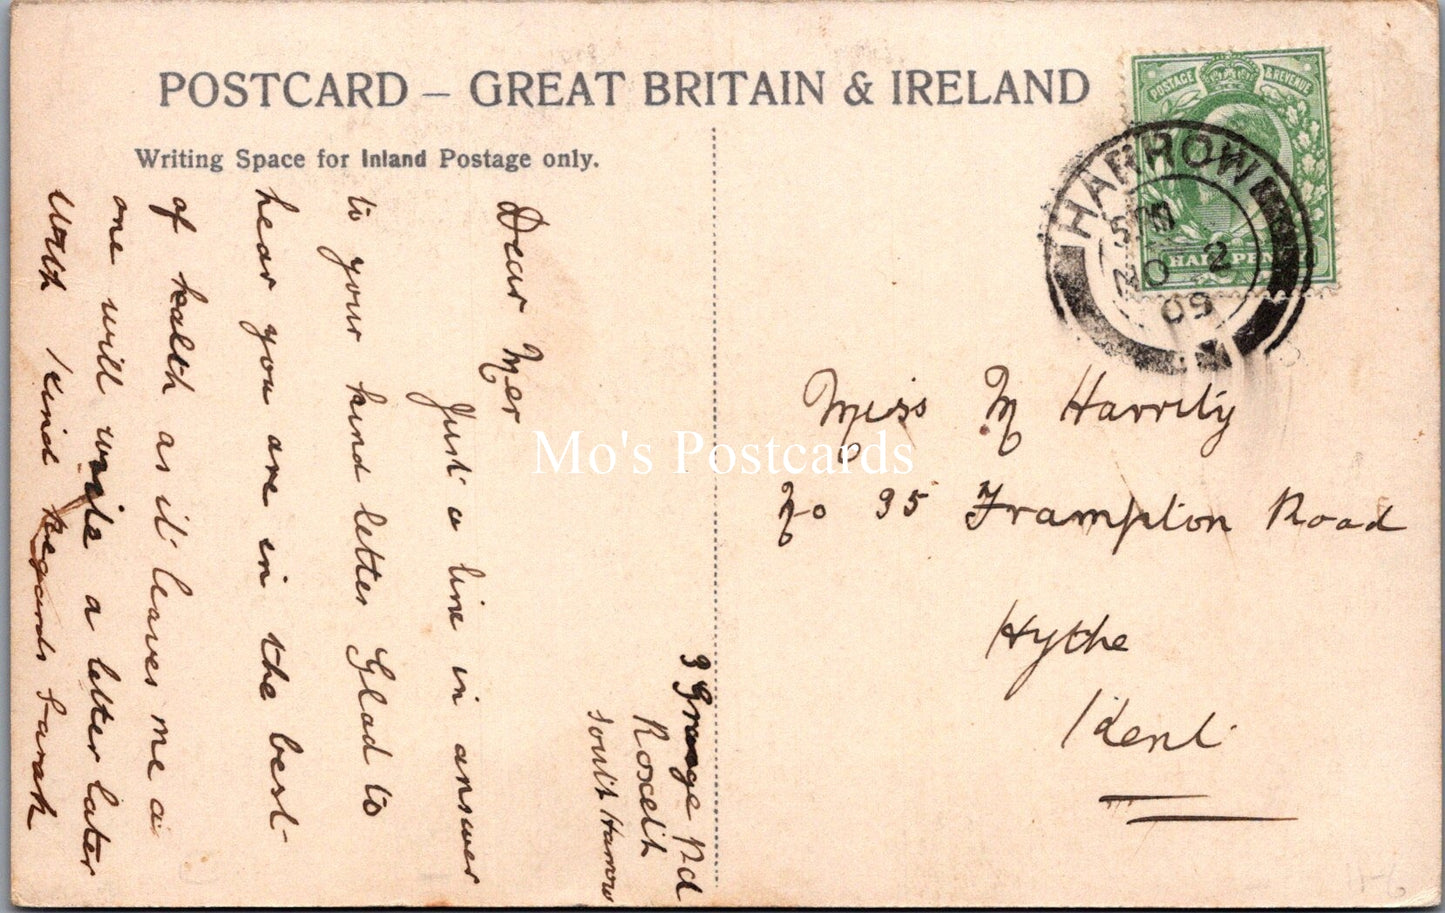 POSTCARD – GREAT BRITAIN & IRELAND
Writing Space for Inland Postage only.
POSTAGE & REVENUE
HALF PENNY
HARROW
2
09
3 Grange Rd
Roxeth
South Harrow
Dear Mer
Just a line in answer
to your kind letter Glad to
hear you are in the best
of health as it leaves me a
one will write a letter later
With Kind Regards Sarah
Miss M Harrity
No 35 Frampton Road
Hythe
Kent
Mo's Postcards